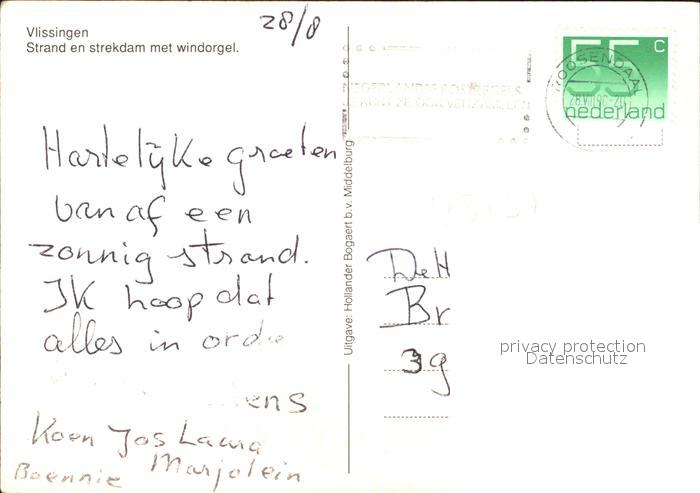 28/8
Vlissingen
Strand en strekdam met windorgel.
55 c
nederland
ROOSENDAAL
NEDERLANDSE POSTZEGELS
JE KUNT ZE OOK VERZAMELEN
Hartelijke groeten
vanaf een
zonnig strand.
Ik hoop dat
alles in orde
Koen Jos Laura
Boennie Marjolein
Uitgave: Hollander Bogaert b.v. Middelburg
De H
Br
39
privacy protection
Datenschutz